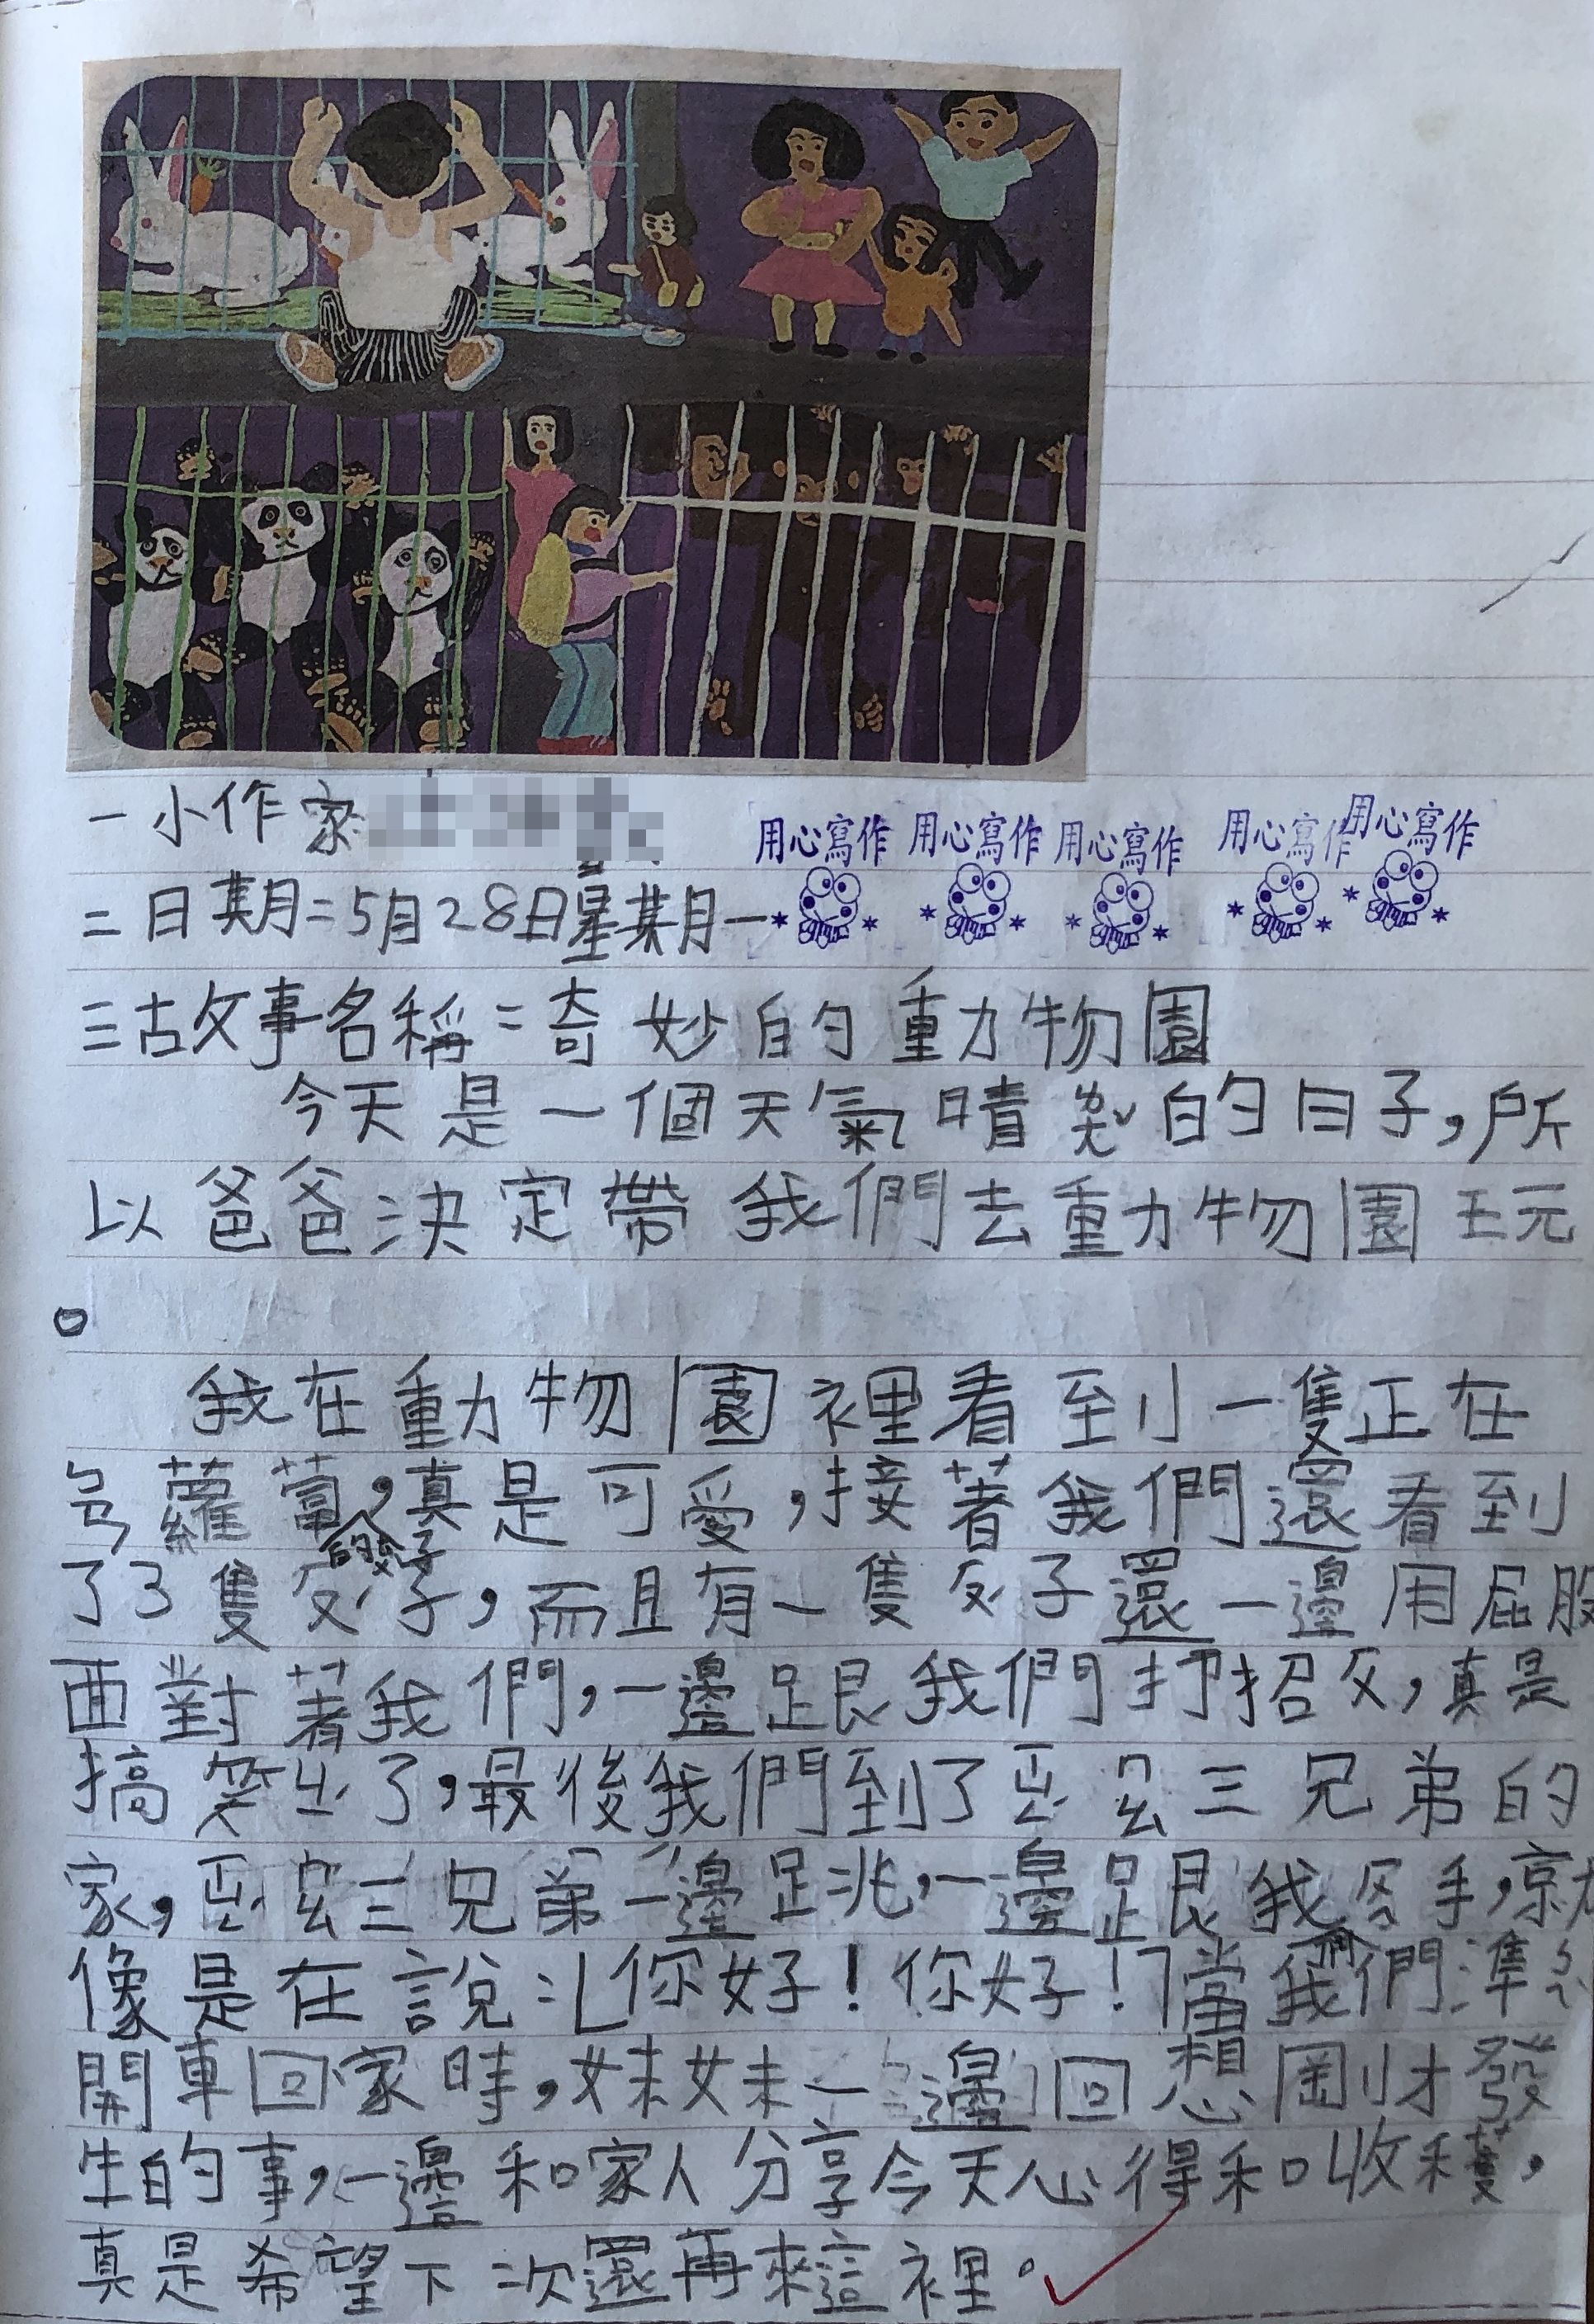 一小作家:
二日期=5月28日星期一
用心寫作 用心寫作 用心寫作 用心寫作 用心寫作
三故事名稱=奇妙的動物園
今天是一個天氣晴的日子,所
以爸爸決定帶我們去動物園玩
。
我在動物園裡看到小一隻正在
蘿蔔,真是可愛,接著我們還看到
了3隻子,而且有一隻子還一邊用屁股
面對著我們,一邊跟我們打招,真是
搞笑ㄙˇ了,最後我們到了三兄弟的
家,三兄弟一邊跳,一邊跟我手,就
像是在說:「你好!你好!」當我們準
開車回家時,妹妹一邊回想剛才發
生的事,一邊和家人分享今天心得和收穫,
真是希望下次還再來這裡。